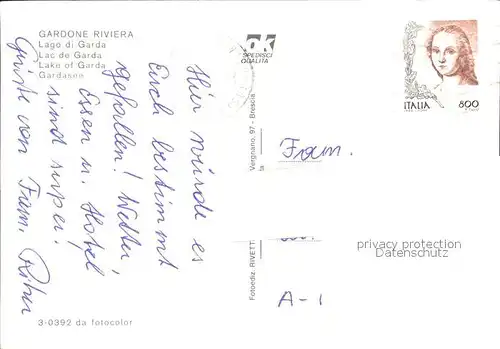 GARDONE RIVIERA
Lago di Garda
Lac de Garda
Lake of Garda
Gardasee
Hier würde es
Euch bestimmt
gefallen! Wetter,
Essen u. Hotel
sind super!
Grüße von Fam.
3-0392 da fotocolor
ok
SPEDISCI
QUALITÀ
Vergnano, 97 - Brescia
Fotoediz. RIVETT
ITALIA
800
Fam.
privacy protection
Datenschutz
A-1